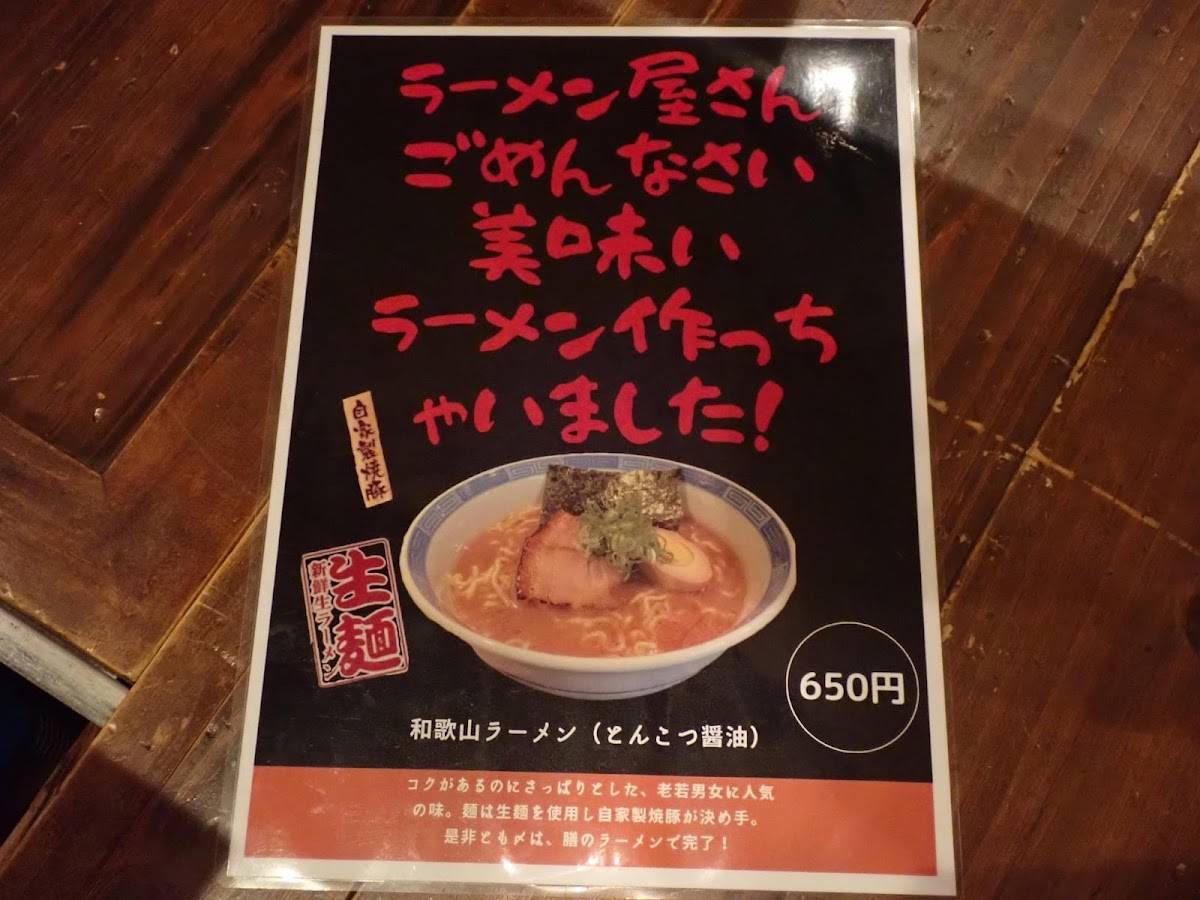 ラーメン屋さん
ごめんなさい
美味い
ラーメン作っち
ゃいました!
自家製焼豚
生麺
新鮮生ラーメン
650円
和歌山ラーメン（とんこつ醤油）
コクがあるのにさっぱりとした、老若男女に人気
の味。麺は生麺を使用し自家製焼豚が決め手。
是非とも〆は、膳のラーメンで完了！